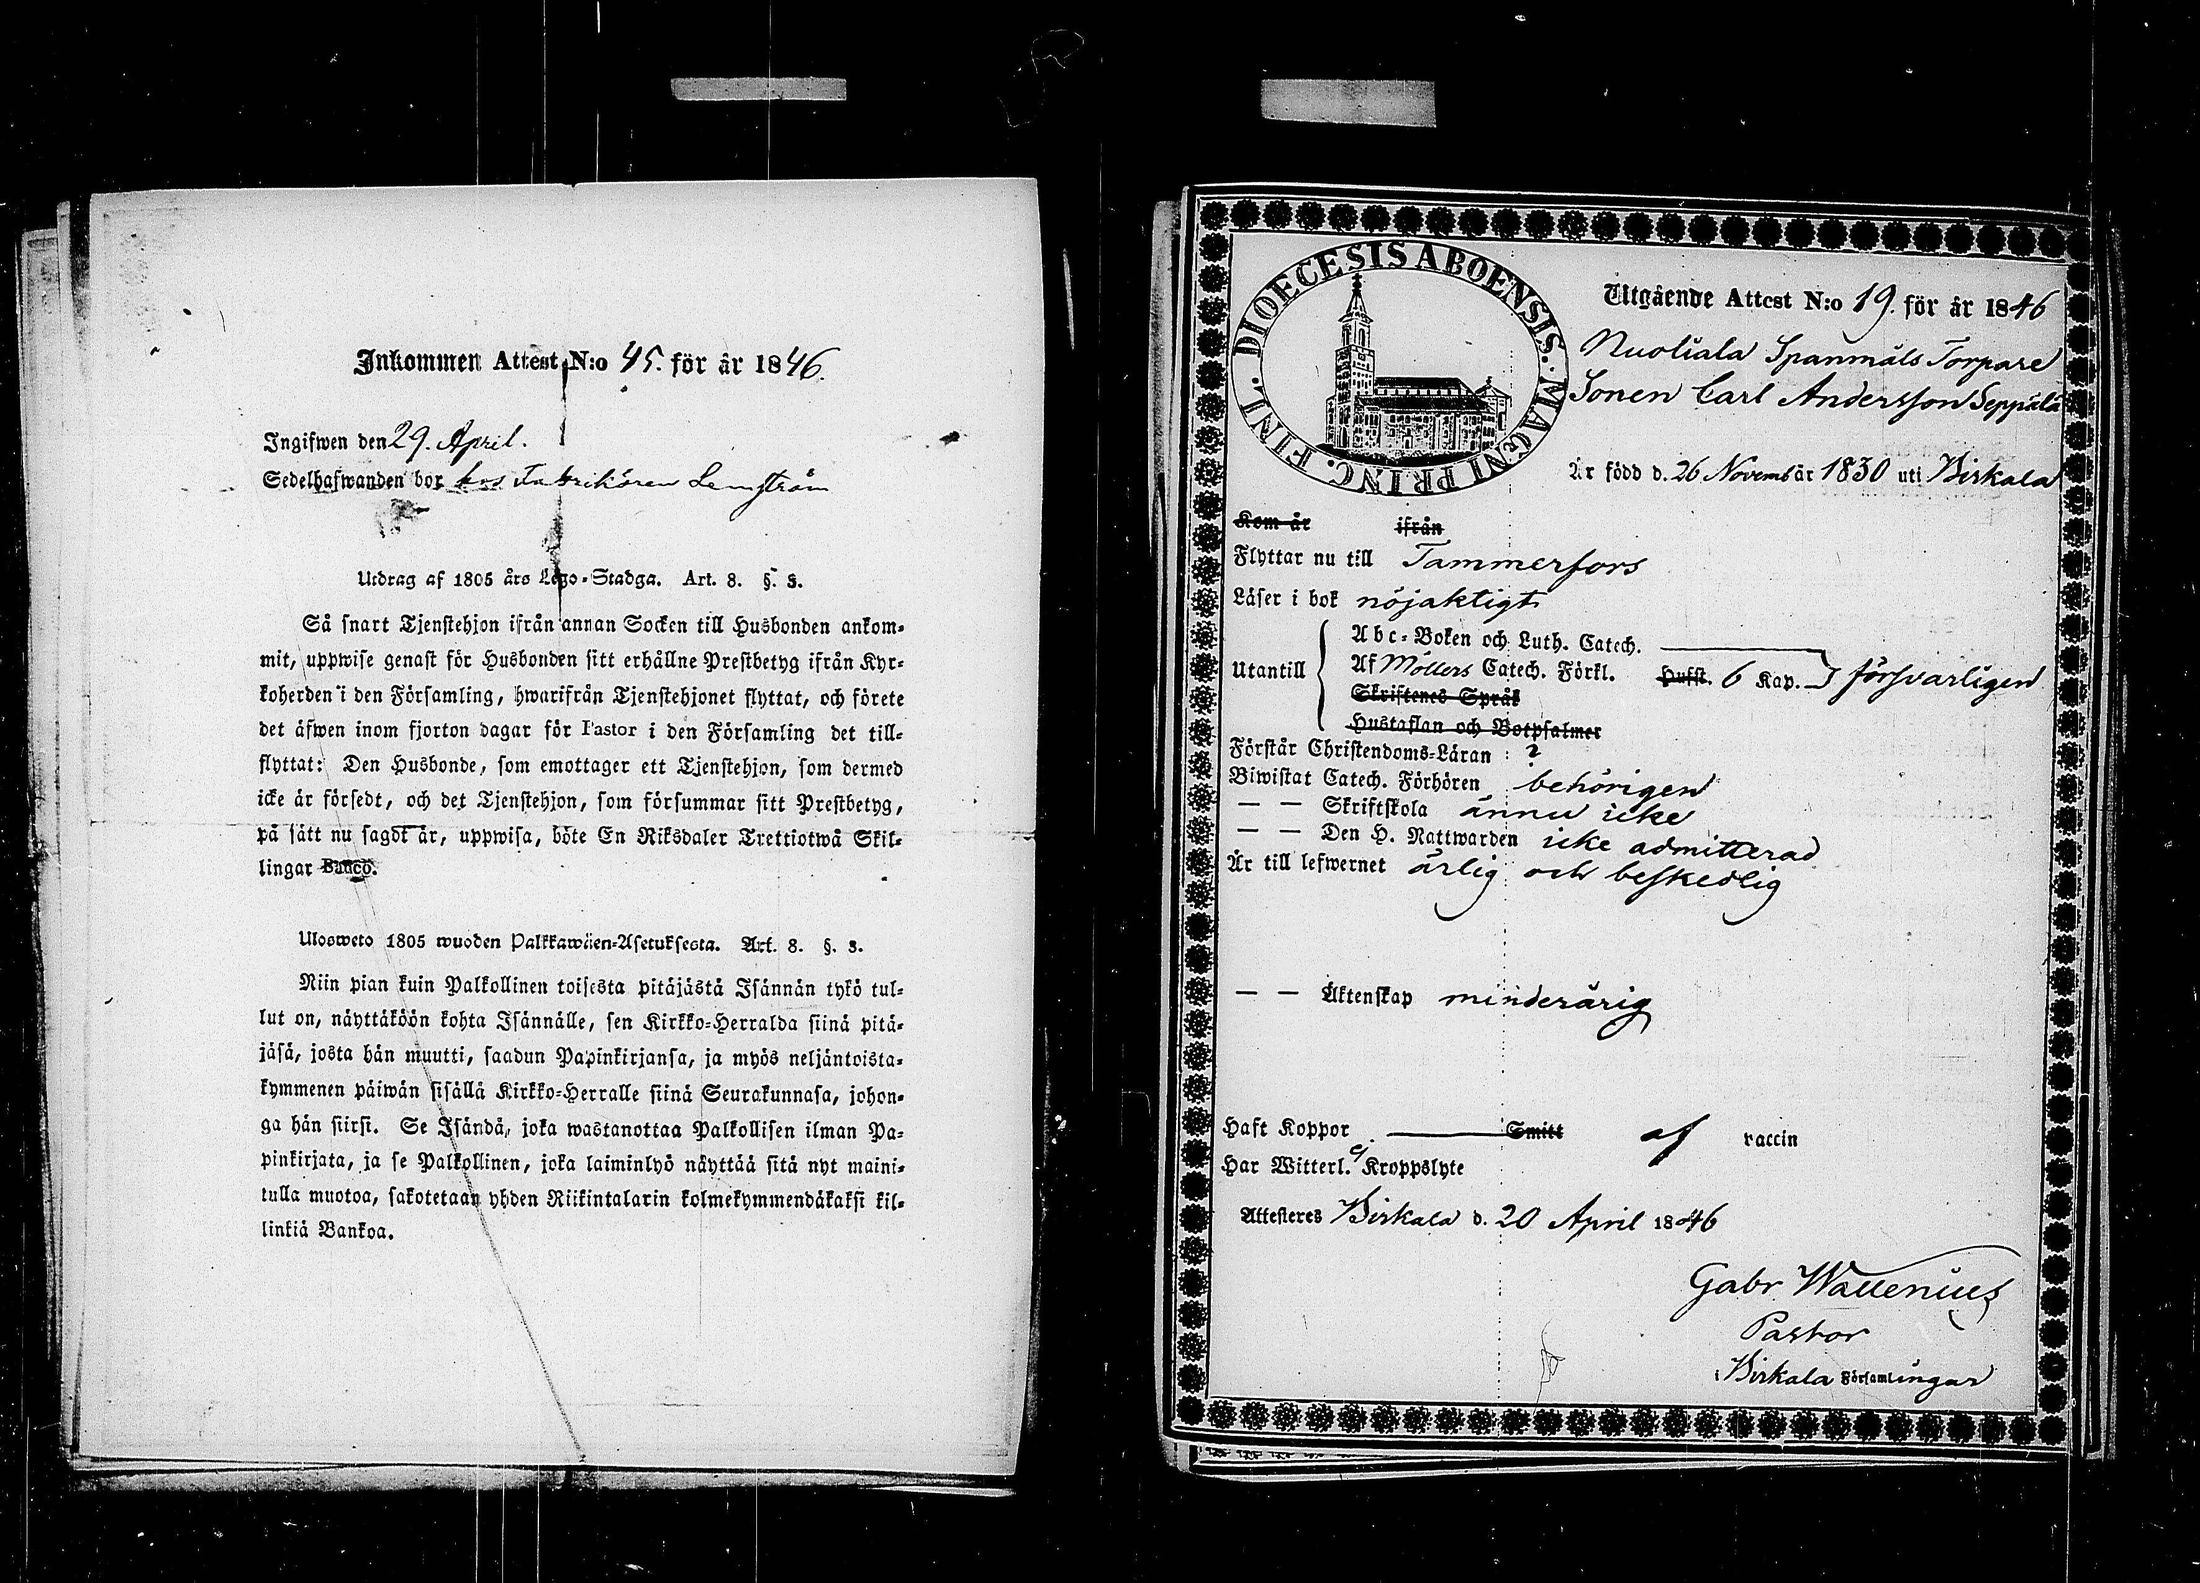 Inkommen Attest N:o 45. för år 1846.
Ingifwen den 29. April.
Sedelhafwanden bor hos Fabrikören Lemström
Utdrag af 1805 års Lego-Stadga. Art. 8. §. 3.
Så snart Tjenstehjon ifrån annan Socken till Husbonden ankom-
mit, uppwise genast för Husbonden sitt erhållne Prestbetyg ifrån Kyr-
koherden i den Församling, hwarifrån Tjenstehjonet flyttat, och förete
det äfwen inom fjorton dagar för Pastor i den Församling det till-
flyttat: Den Husbonde, som emottager ett Tjenstehjon, som dermed
icke är försedt, och det Tjenstehjon, som försummar sitt Prestbetyg,
på sätt nu sagdt är, uppwisa, böte En Riksdaler Trettiotwå Skil-
lingar Banco.
Ulosweto 1805 wuoden Palkkawäen-Asetuksesta. Art. 8. §. 3.
Niin pian kuin Palkollinen toisesta pitäjästä Isännän tykö tul-
lut on, näyttäköön kohta Isännälle, sen Kirkko-Herralda siinä pitä-
jäsä, josta hän muutti, saadun Papinkirjansa, ja myös neljäntoista-
kymmenen päiwän sisällä Kirkko-Herralle siinä Seurakunnasa, johon-
ga hän siirsi. Se Isändä, joka wastanottaa Palkollisen ilman Pa-
pinkirjata, ja se Palkollinen, joka laiminlyö näyttää sitä nyt maini-
tulla muotoa, sakotetaan yhden Riikintalarin kolmekymmendäkaksi kil-
linkiä Bankoa.
DIOECESIS ABOENSIS. MAGNI PRINC. FINL.
Utgående Attest N:o 19. för år 1846
Nuoliala Spanmåls Torpare
Sonen Carl Andersson Seppälä
Är född d. 26 Novemb år 1830 uti Birkala
Kom år ifrån
Flyttar nu till Tammerfors
Läser i bok nöjaktigt
Utantill
Abc-Boken och Luth. Catech.
Af Möllers Catech. Förkl. Hufst. 6 Kap. försvarligen
Skriftenes Språk
Hustaflan och Botpsalmer
Förstår Christendoms-Läran : ?
Biwistat Catech. Förhören behörigen
— — Skriftskola ännu icke
— — Den H. Nattwarden icke admitterad
Är till lefwernet ärlig och beskedlig
— — Äktenskap minderårig
Haft Koppor Smitt af vaccin
Har Witterl. ej Kroppslyte
Attesteres Birkala d. 20 April 1846
Gabr Wallenius
Pastor
Birkala Församlingar